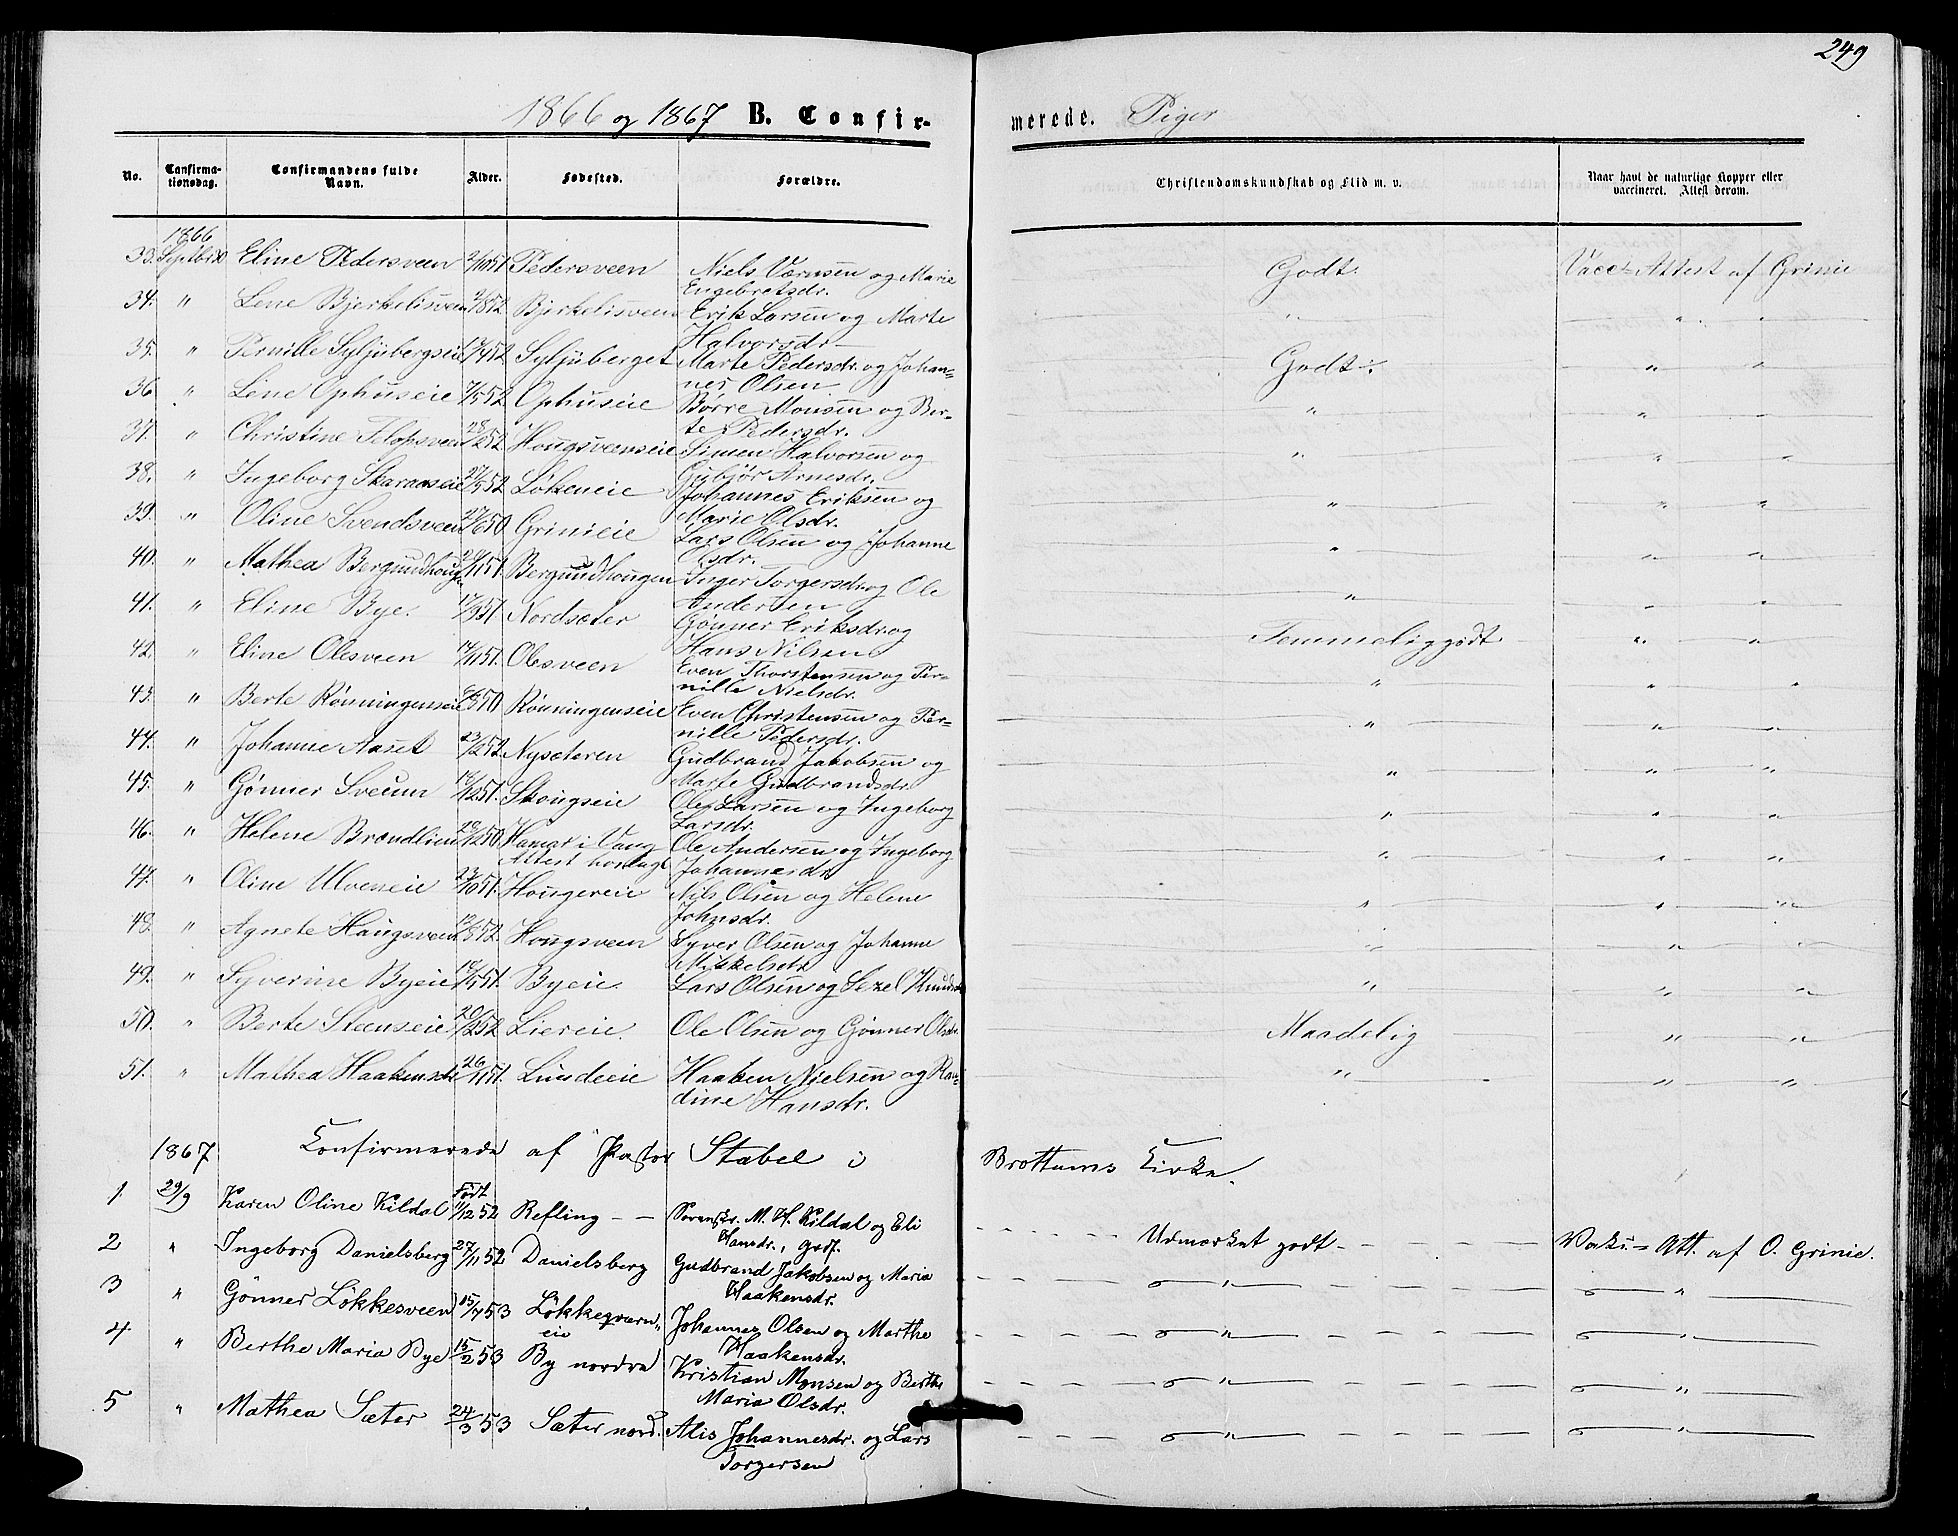 249
1866 og 1867 B. Confir-
merede. Piger
No. Confirma-tionsdag. Confirmandens fulde Navn. Alder. Fødested. Forældre. Christendomskundskab og Flid m. v. Naar havt de naturlige Kopper eller vaccineret. Attest derom.
1866
33. Septbr 30 Eline Pedersveen 2/10 51. Pedersveen Niels Værnsen og Marie Godt. Vacc-Attest af Grinie
Engebretsdr.
34. " Lene Bjerkelisveen 9/8 52 Bjerkelisveen Erik Larsen og Marte " " "
Halvorsdr
35. " Pernille Syljubergseie 17/4 52 Syljuberget Marte Pedersdr. og Johan= Godt ÷ " "
nes Olsen
36 " Lene Ophuseie 7/5 52 Ophuseie Børre Monsen og Ber- " " "
te Pedersdr.
37. " Christine Flopsveen 28/2 52 Hougsveenseie Simen Halvorsen og " " "
Gubjør Arnesdr.
38. " Ingeborg Skaraaseie 27/5 52 Løkeneie Johannes Eriksen og " " "
Marie Olsdr.
39. " Oline Svendsveen 27/6 50 Grinieie Lars Olsen og Johanne " " "
Olsdr.
40. " Mathea Bergundhougen 21/11 51. Bergundhougen Inger Torgersdr og Ole " " "
Andersen
41. " Eline Bye. 17/9 51. Nordsæter Gønner Eriksdr. og Temmelig godt " "
Hans Nilsen
42. " Eline Olesveen 17/11 51. Olesveen Even Thorstensen og Per= " " "
nille Nielsdr.
43. " Berte Rønningenseie 50 Rønningenseie Even Christensen og Per= " " "
nille Pedersdr.
44. " Johanne Aaset 23/2 52 Nysæteren Gudbrand Jakobsen og " " "
Marte Gudbrandsdr.
45. " Gønner Sveum 16/12 51. Skougseie Ole Larsen og Ingeborg " " "
Larsdr.
46. " Helene Brændlien 20/12 50 Hamar i Vang Ole Andersen og Ingeborg " " "
Attest Johannesdr
47. " Oline Ulveneie 23/10 51. Hougereie Nils Olsen og Helene " " "
Johnsdr.
48. " Agnete Haugsveen 13/8 52. Hougsveen Syver Olsen og Johanne " " "
Mikkelsdr
49. " Syverine Byeie 19/5 51. Byeie. Lars Olsen og Sezel Knudsdr " " "
50. " Berte Steenseie 20/2 52 Liereie. Ole Olsen og Gønner Olsdr. Maadelig " "
51. " Mathea Haakensdr 26/11 51. Lundeeie Haaken Nielsen og Ran= " " "
dine Hansdr.
1867 Konfirmerede af Pastor Stabel i Brøttums Kirke.
Født
1 29/9 Karen Oline Kildal 11/12 52 Refling Sorenskr. M. H. Kildal og Eli Udmærket godt Vaks= Att. af O. Grinie.
Hansdr., Grøf.
2 " Ingeborg Danielsberg 27/11 52 Danielsberg Gudbrand Jakobsen og Maria " "
Haakensdr.
3 " Gønner Løkkesveen 15/7 53 Løkkeqværn= Johannes Olsen og Marthe " "
eie Haakensdr.
4 " Berthe Maria Bye 15/2 53 By nordre Kristian Monsen og Berthe " "
Maria Olsdr.
5 " Mathea Sæter 24/3 53 Sæter nord. Alis Johannesdr. og Lars " "
Torgersen